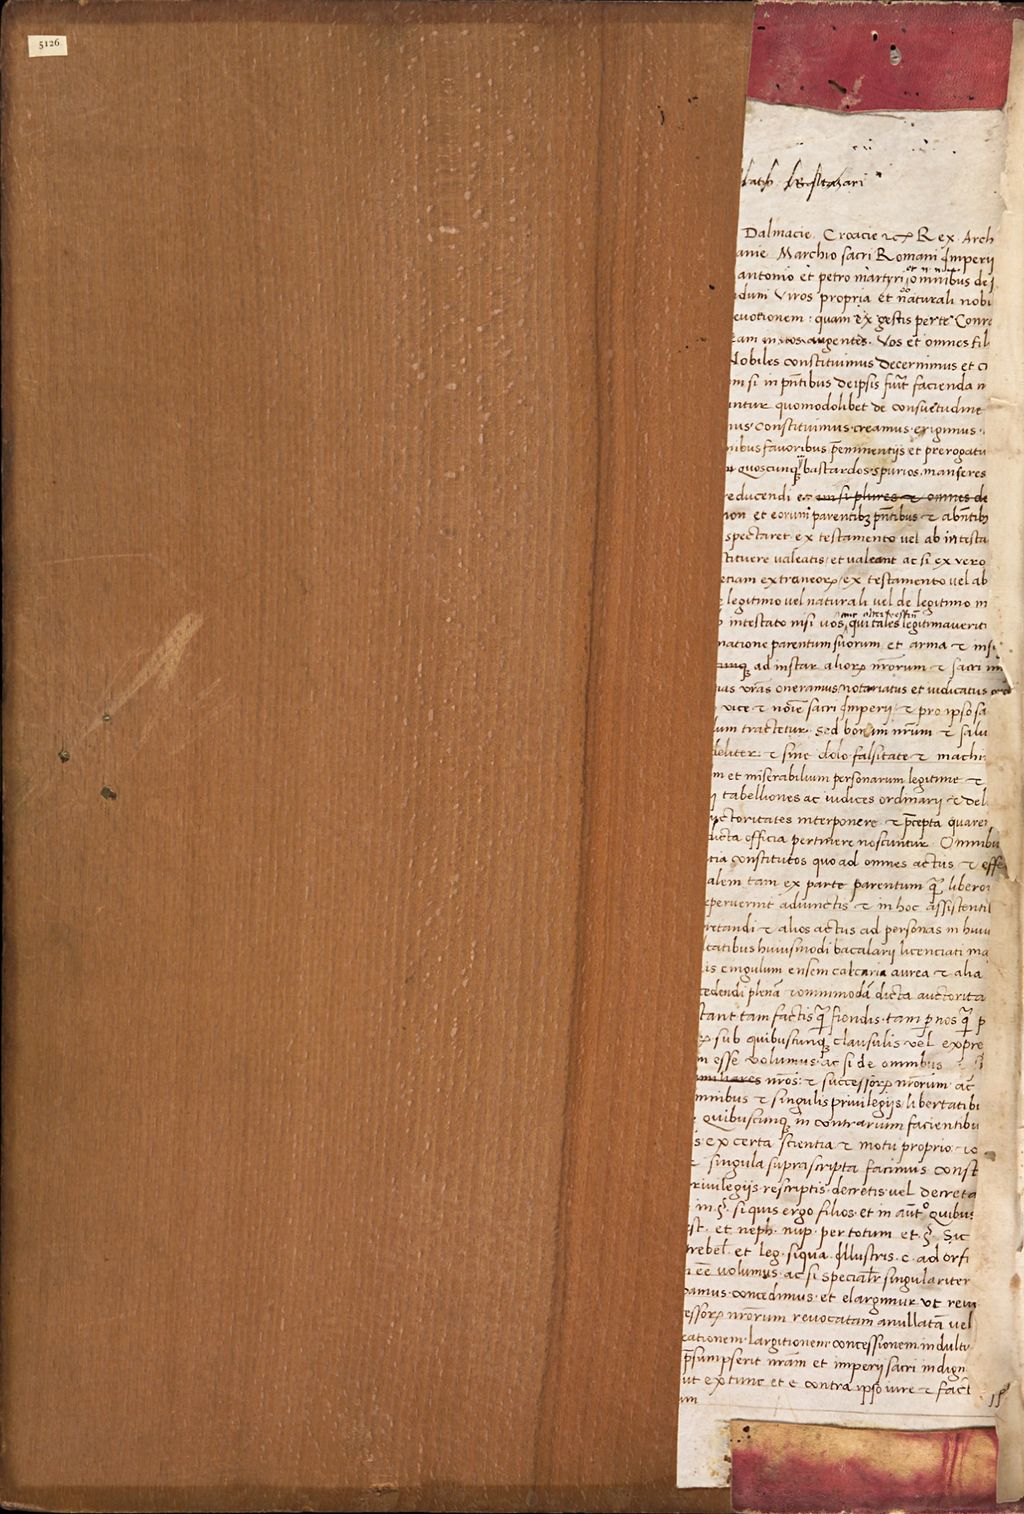 5126
Dalmacie Croacie &c Rex Arch
anie Marchio sacri Romani Imperii
antonio et petro martyri omnibus de
dum Viros propria et naturali nobi
evotionem quam ex gestis per te Conr
Vos et omnes fil
Nobiles constituimus decernimus et
m si in pñtibus de ipsis fuit facienda
untur quomodolibet de consuetudine
ius constituimus creamus erigimus
nibus favoribus p̃eminentijs et prerogatu
quoscunq bastardos spurios manseres
educendi et si plures omnes de
ion et eorum parentibꝫ pñtibus & abñtibꝫ
spectaret ex testamento vel ab intesta
tituere valeatis et valeant ac si ex vero
etiam extraneorꝝ ex testamento vel ab
legitimo vel naturali vel de legitimo m
intestato nisi vos qui tales legitimaverit
natione parentum suorum et arma & insi
ad instar aliorꝝ nr̃orum & sacri
ias vr̃as oneramus notariatus et iudicatus
vice & noiẽ sacri Imperij & pro ipso sa
lum tractetur sed bonum nr̃um & salu
deliter & sine dolo falsitate & machi
m et miserabilium personarum legitime &
i tabelliones ac iudices ordinarij & del
uctoritates interponere & p̃cepta quarer
dicta officia pertinere noscuntur Omnibu
tia constitutos quo ad omnes actus & effe
alem tam ex parte parentum q̃ liberor
pervenerint adiunctis & in hoc assistentib
retandi & alios actus ad personas in huiu
tatibus huiusmodi bacalarij licenciati ma
is cingulum ensem calcaria aurea & alia
cedendi plenã & omnimodã dicta auctorita
tam factis q̃ fiendis tam p nos q̃ p
sub quibuscunq clausulis vel expre
m esse volumus ac si de omnibus
miliares nr̃os & successorꝝ nr̃orum ac
mnibus & singulis privilegijs libertatibꝫ
Quibuscunq in contrarium facientibu
s ex certa scientia & motu proprio
singula suprascripta facimus const
rivilegijs rescriptis decretis vel decreta
in §. si quis ergo filios et in auct Quibus
et neph nup per totum et §. Sic
rebel et leg siqua Illustris c. ad orfi
eẽ volumus ac si specialr̃ singulariter
amus concedimus et elargimur ut rem
essorꝝ nr̃orum revocatam anullatã vel
cationem largitionem concessionem indultu
p̃sumpserit nr̃am et imperij sacri indign
ut ex tunc et e contra ipso iure & fact
um